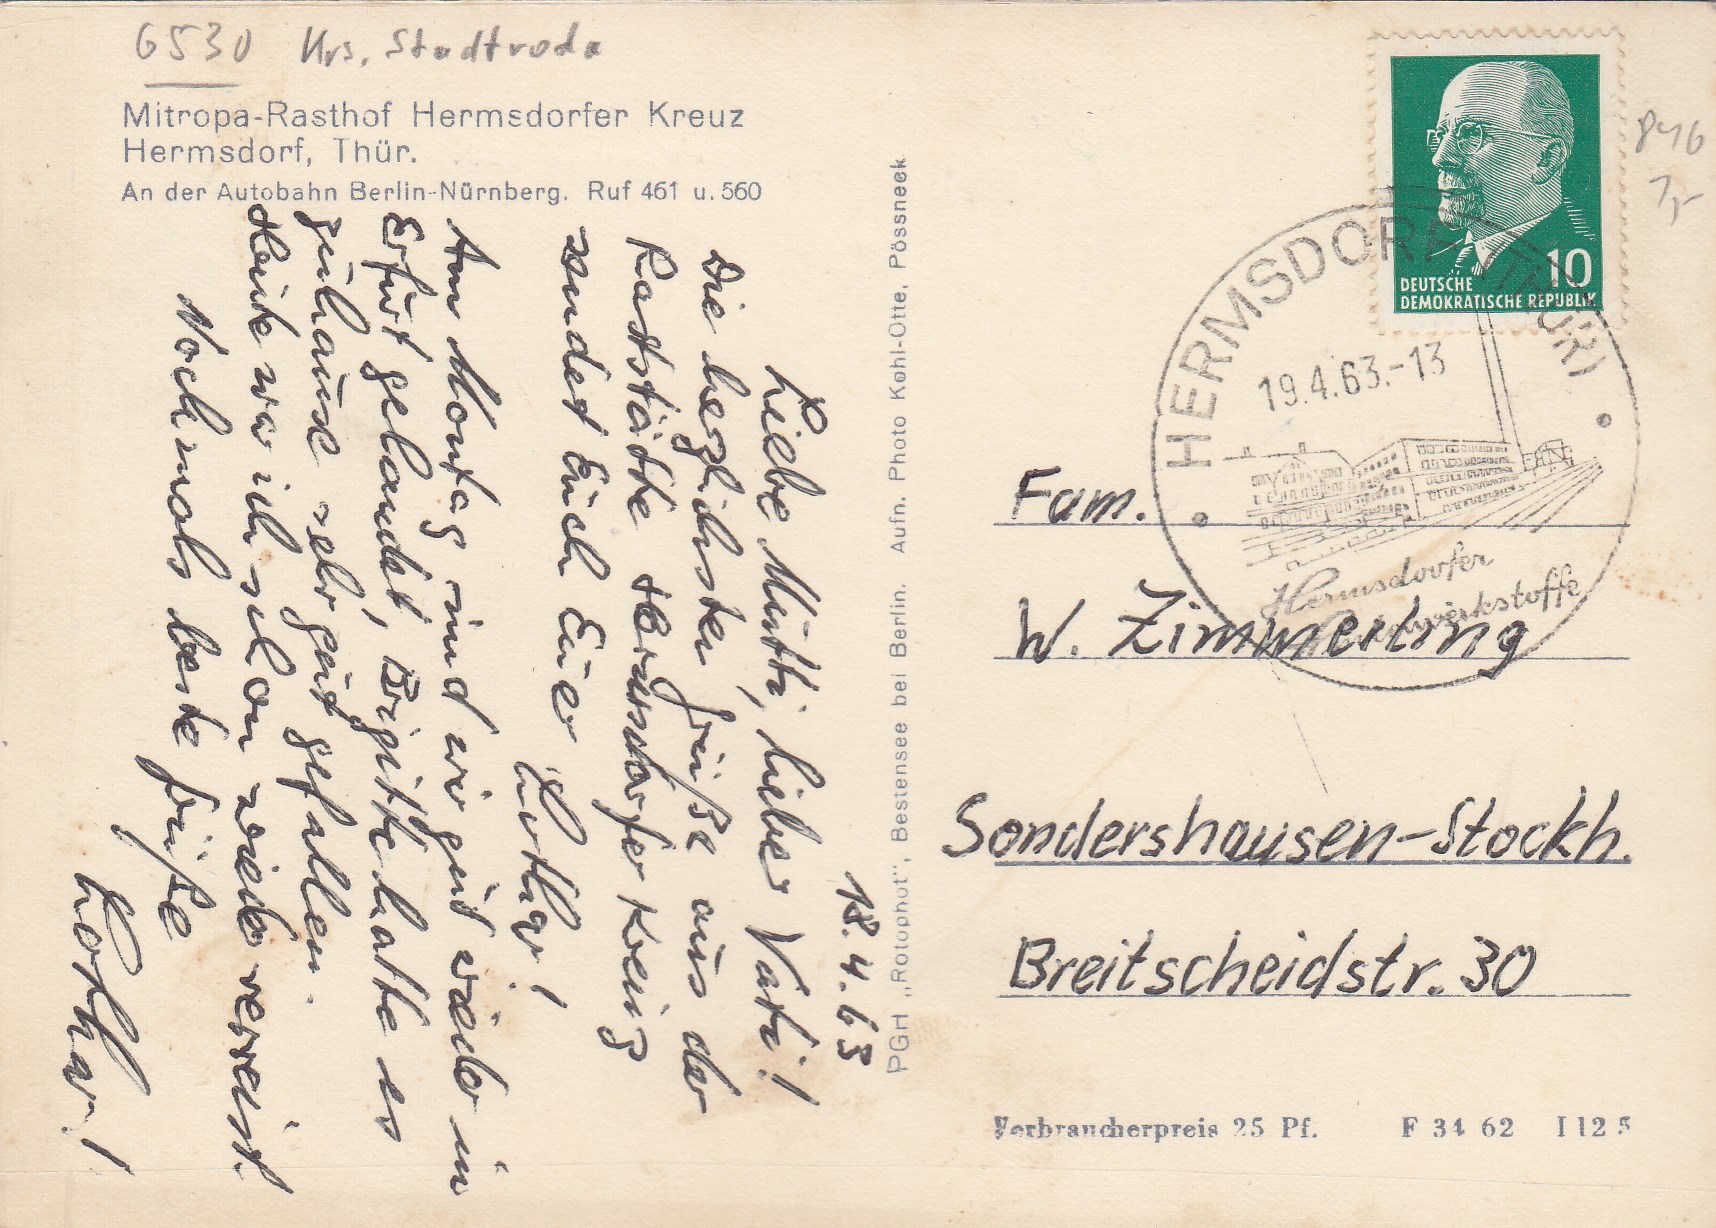 6530 Krs. Stadtroda
Mitropa-Rasthof Hermsdorfer Kreuz
Hermsdorf, Thür.
An der Autobahn Berlin-Nürnberg. Ruf 461 u. 560
18.4.63
Liebe Mutti, lieber Vati!
Die herzlichsten Grüße aus der
Raststätte Hermsdorfer Kreuz
sendet Euch Euer
Lothar!
Am Montag sind wir gut wieder in
Erfurt gelandet, Brigitte hatte es
zuhause sehr gut gefallen.
Heute war ich schon wieder verreist.
Nochmals beste Grüße
Lothar!
PGH „Rotophot", Bestensee bei Berlin. Aufn. Photo Kohl-Otte, Pössneck
10
DEUTSCHE
DEMOKRATISCHE REPUBLIK
846
7,-
HERMSDORF (THÜR)
19.4.63.-13
Hermsdorfer
Fam.
W. Zimmerling
Sondershausen-Stockh.
Breitscheidstr. 30
Verbraucherpreis 25 Pf. F 34 62 I 12 5